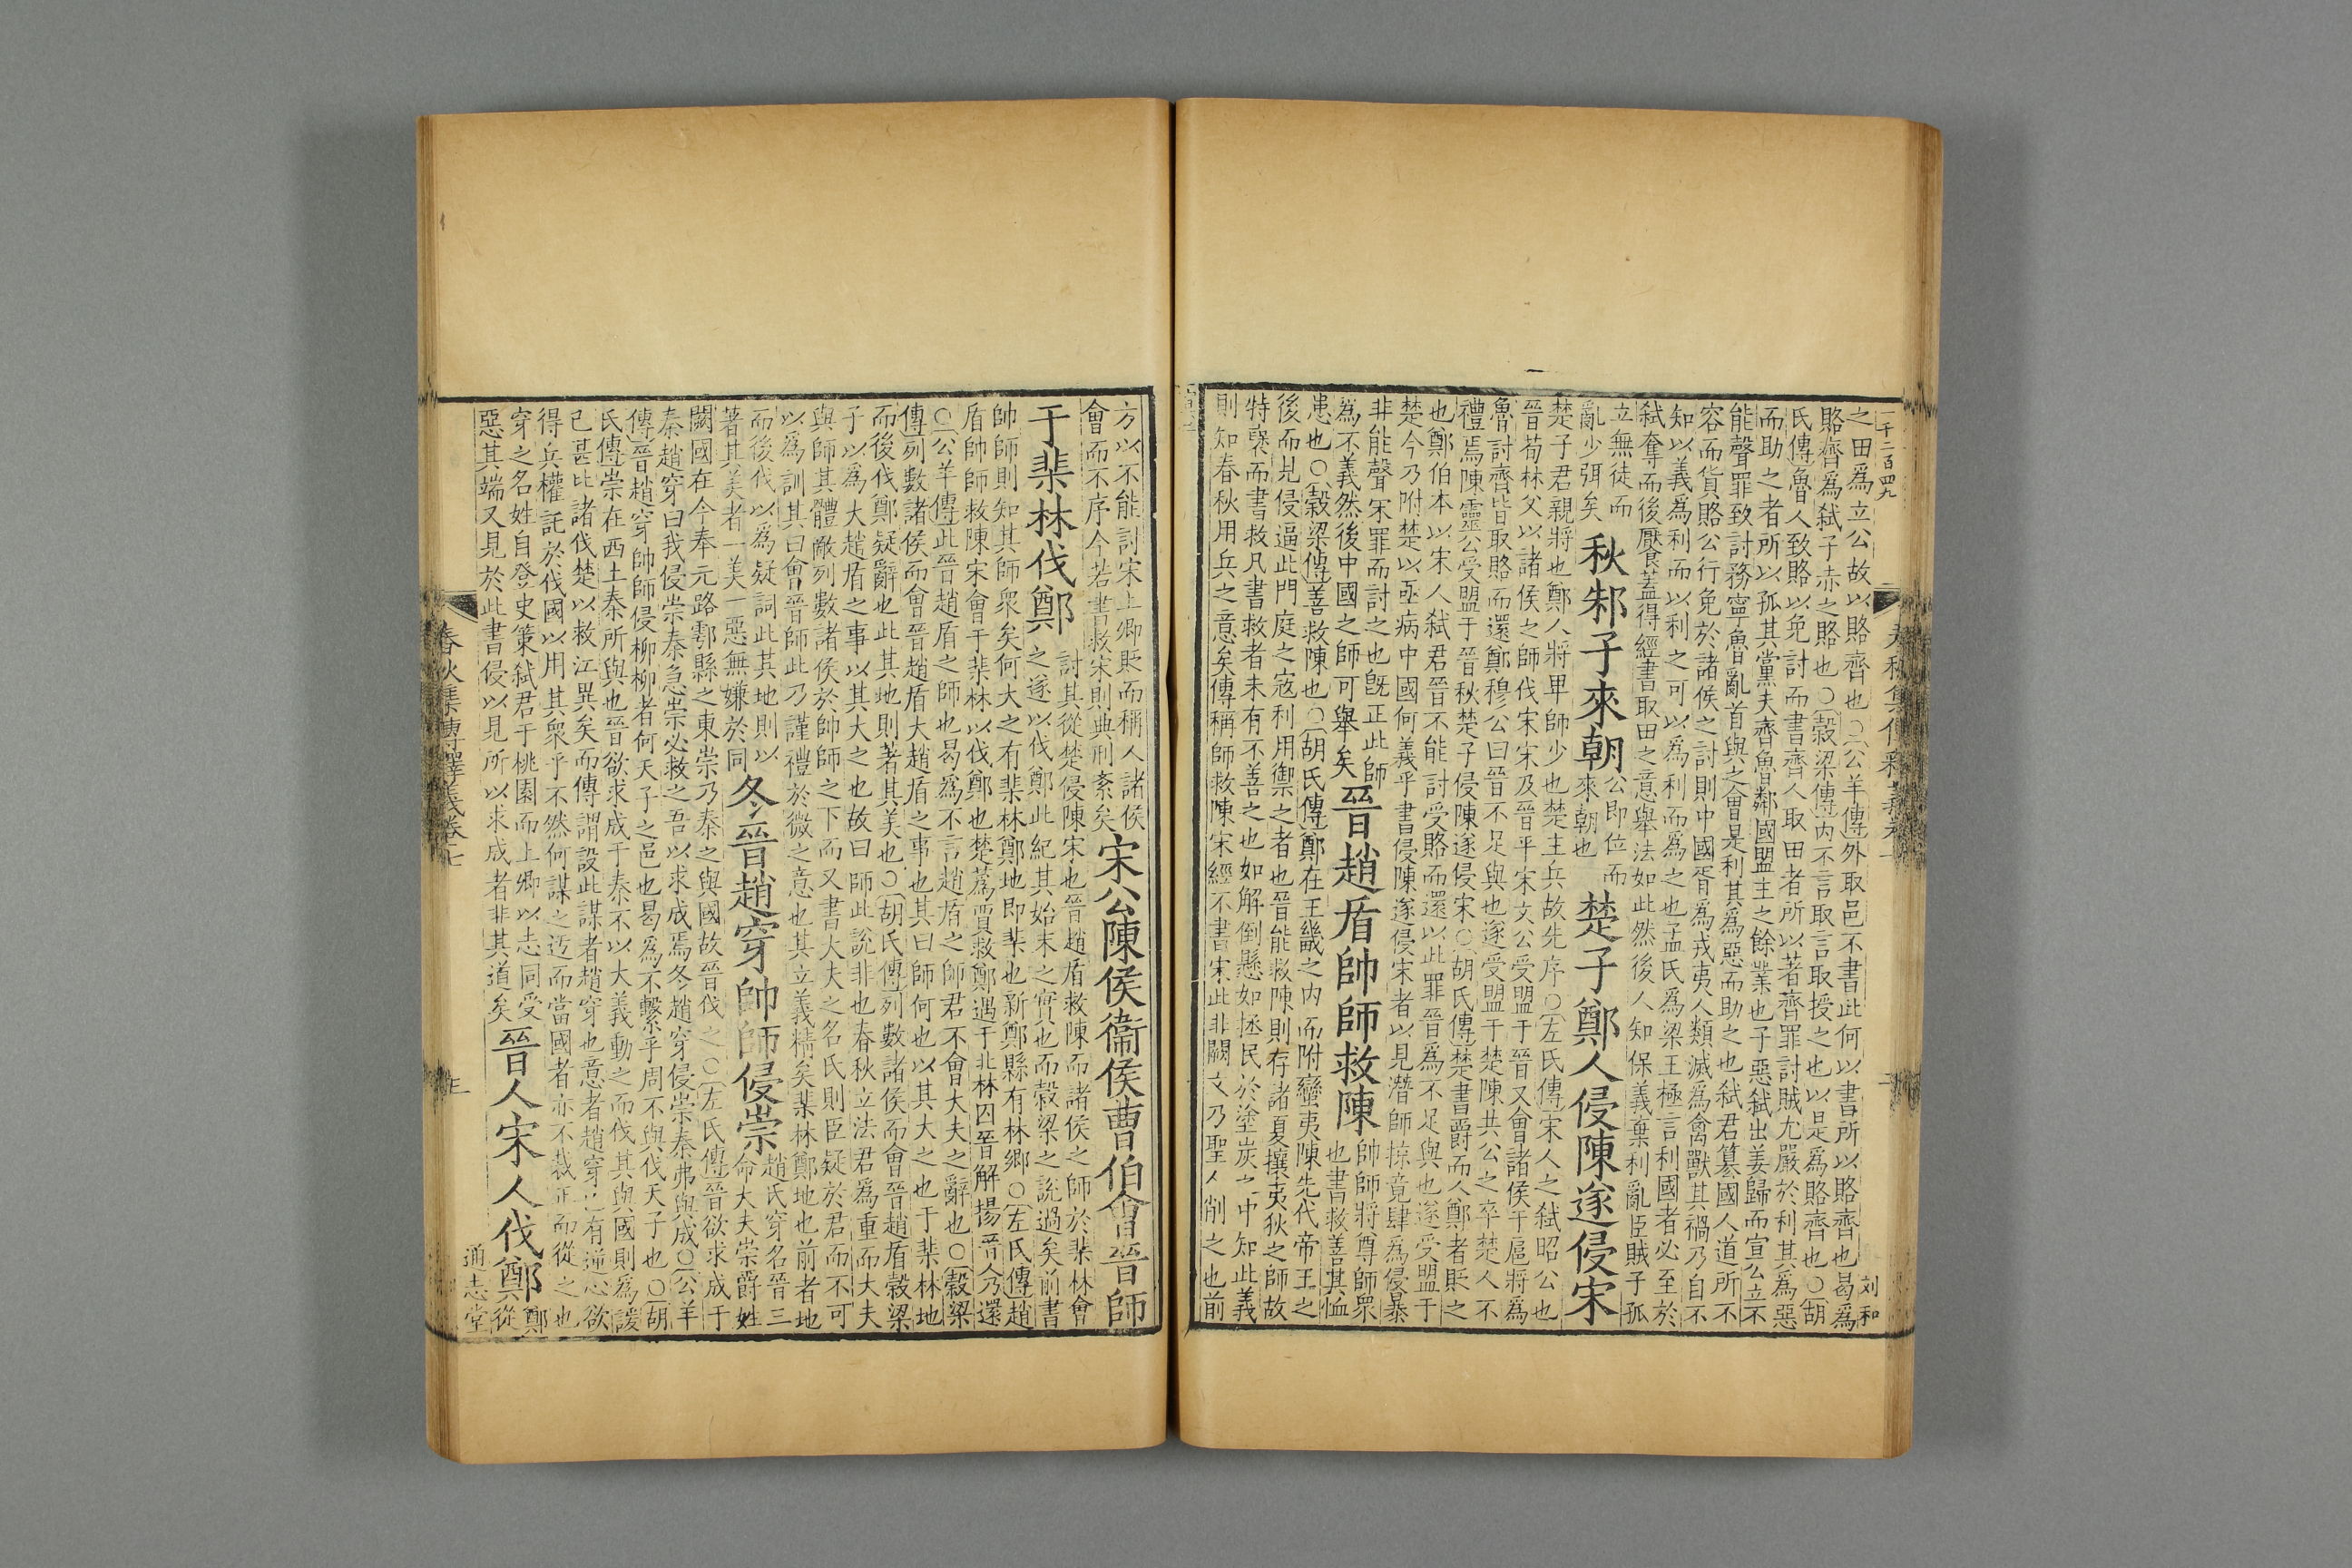 一千二百四九
刘和
之田爲立公故以賂齊也〇公羊傳外取邑不書此何以書所以賂齊也曷爲
賂齊爲弑子赤之賂也〇穀梁傳内不言取言取授之也以是爲賂齊也〇胡
氏傳魯人致賂以免討而書齊人取田者所以著齊罪討賊尤嚴於利其爲惡
而助之者所以孤其黨夫齊魯鄰國盟主之餘業也子惡弑出姜歸而宣公立不
能聲罪致討務寧魯亂首與之會是利其爲惡而助之也弑君簒國人道所不
容而貨賂公行免於諸侯之討則中國胥爲戎夷人類滅爲禽獸其禍乃自不
知以義爲利而以利之可以爲利而爲之也孟氏爲梁王極言利國者必至於
弑奪而後厭食蓋得經書取田之意舉法如此然後人知保義棄利亂臣賊子孤
立無徒而
亂少弭矣
秋邾子來朝
公即位而
來朝也
楚子鄭人侵陳遂侵宋
楚子君親將也鄭人將卑師少也楚主兵故先序〇左氏傳宋人之弑昭公也
晉荀林父以諸侯之師伐宋宋及晉平宋文公受盟于晉又會諸侯于扈將爲
魯討齊皆取賂而還鄭穆公曰晉不足與也遂受盟于楚陳共公之卒楚人不
禮焉陳靈公受盟于晉秋楚子侵陳遂侵宋〇胡氏傳楚書爵而人鄭者貶之
也鄭伯本以宋人弑君晉不能討受賂而還以此罪晉爲不足與也遂受盟于
楚今乃附楚以亟病中國何義乎書侵陳遂侵宋者以見潛師掠竟肆爲侵暴
非能聲宋罪而討之也旣正此師
爲不義然後中國之師可舉矣
晉趙盾帥師救陳
帥師將尊師衆
也書救善其恤
患也〇穀梁傳善救陳也〇胡氏傳鄭在王畿之内而附蠻夷陳先代帝王之
後而見侵逼此門庭之寇利用禦之者也晉能救陳則存諸夏攘夷狄之師故
特褒而書救凡書救者未有不善之也如解倒懸如拯民於塗炭之中知此義
則知春秋用兵之意矣傳稱師救陳宋經不書宋此非闕文乃聖人削之也前
方以不能討宋上卿貶而稱人諸侯
會而不序今若書救宋則典刑紊矣
宋公陳侯衞侯曹伯會晉師
于棐林伐鄭
討其從楚侵陳宋也晉趙盾救陳而諸侯之師於棐林會
之遂以伐鄭此紀其始末之實也而穀梁之說過矣前書
帥師則知其師衆矣何大之有棐林鄭地即棐也新鄭縣有林鄉〇左氏傳趙
盾帥師救陳宋會于棐林以伐鄭也楚蒍賈救鄭遇于北林囚晉解揚晉人乃還
〇公羊傳此晉趙盾之師也曷爲不言趙盾之師君不會大夫之辭也〇穀梁
傳列數諸侯而會晉趙盾大趙盾之事也其曰師何也以其大之也于棐林地
而後伐鄭疑辭也此其地則著其美也〇胡氏傳列數諸侯而會晉趙盾穀梁
子以爲大趙盾之事以其大之也故曰師此說非也春秋立法君爲重而大夫
與師其體敵列數諸侯於帥師之下而又書大夫之名氏則臣疑於君而不可
以爲訓其曰會晉師此乃謹禮於微之意也其立義精矣棐林鄭地也前者地
而後伐以爲疑詞此其地則以
著其美者一美一惡無嫌於同
冬晉趙穿帥師侵崇
趙氏穿名晉三
命大夫崇爵姓
闕國在今奉元路鄠縣之東崇乃秦之與國故晉伐之〇左氏傳晉欲求成于
秦趙穿曰我侵崇秦急崇必救之吾以求成焉冬趙穿侵崇秦弗與成〇公羊
傳晉趙穿帥師侵柳柳者何天子之邑也曷爲不繫乎周不與伐天子也〇胡
氏傳崇在西土秦所與也晉欲求成于秦不以大義動之而伐其與國則爲諼
已甚比諸伐楚以救江異矣而傳謂設此謀者趙穿也意者趙穿已有逆心欲
得兵權託於伐國以用其衆乎不然何謀之迃而當國者亦不裁正而從之也
穿之名姓自登史策弑君于桃園而上卿以志同受
惡其端又見於此書侵以見所以求成者非其道矣
晉人宋人伐鄭
鄭
從
春秋集傳釋義卷七
通志堂